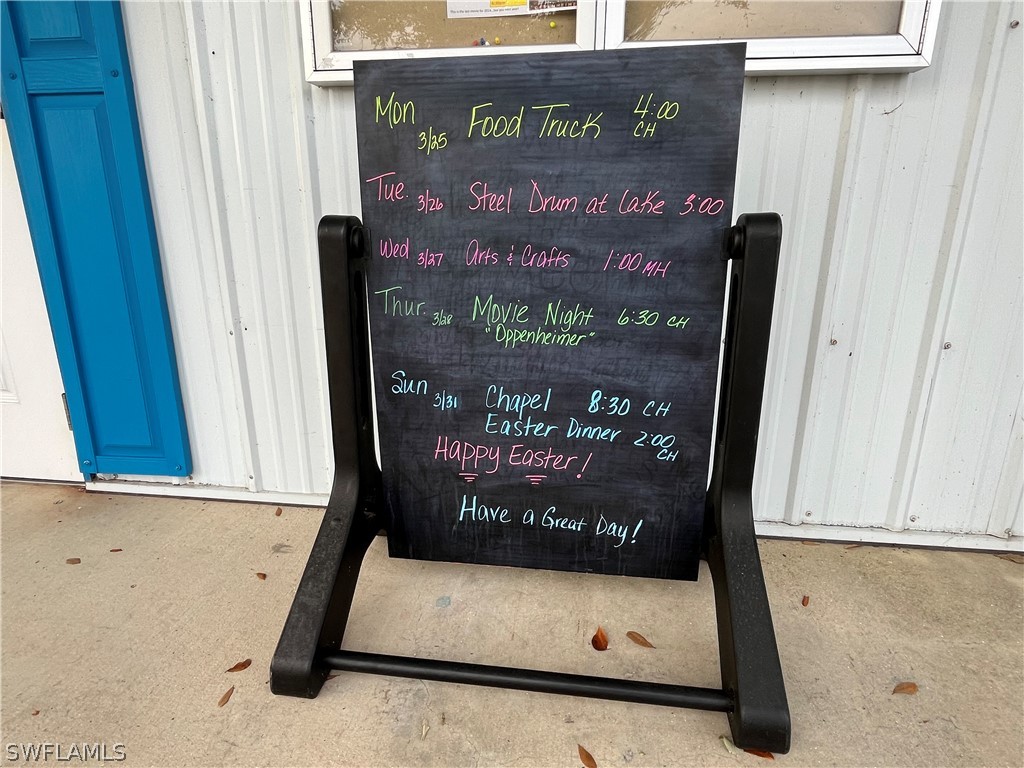 Mon 3/25 Food Truck 4:00 CH
Tue. 3/26 Steel Drum at Lake 3:00
Wed 3/27 Arts & Crafts 1:00 MH
Thur. 3/28 Movie Night 6:30 CH
"Oppenheimer"
Sun 3/31 Chapel 8:30 CH
Easter Dinner 2:00 CH
Happy Easter!
Have a Great Day!
SWFLAMLS